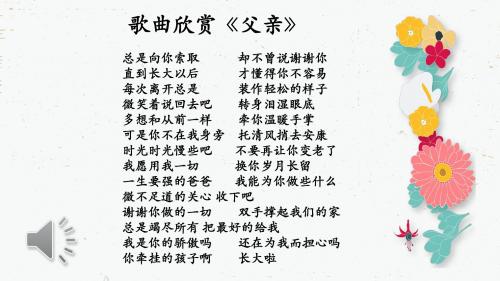 歌曲欣赏《父亲》
总是向你索取 却不曾说谢谢你
直到长大以后 才懂得你不容易
每次离开总是 装作轻松的样子
微笑着说回去吧 转身泪湿眼底
多想和从前一样 牵你温暖手掌
可是你不在我身旁 托清风捎去安康
时光时光慢些吧 不要再让你变老了
我愿用我一切 换你岁月长留
一生要强的爸爸 我能为你做些什么
微不足道的关心 收下吧
谢谢你做的一切 双手撑起我们的家
总是竭尽所有 把最好的给我
我是你的骄傲吗 还在为我而担心吗
你牵挂的孩子啊 长大啦